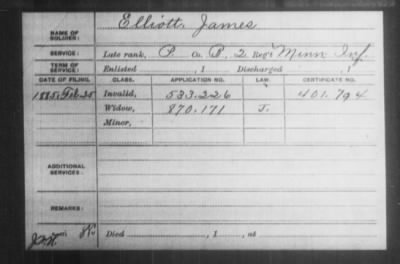 NAME OF SOLDIER: Elliott, James
SERVICE: Late rank, P Co. B, 2 Reg't Minn Inf.
TERM OF SERVICE: Enlisted , 1 Discharged , 1
DATE OF FILING. CLASS. APPLICATION NO. LAW. CERTIFICATE NO.
1885, Feb. 25 Invalid, 533.226 401.794
Widow, 870.171 J.
Minor,
ADDITIONAL SERVICES:
REMARKS:
Died , 1 , at